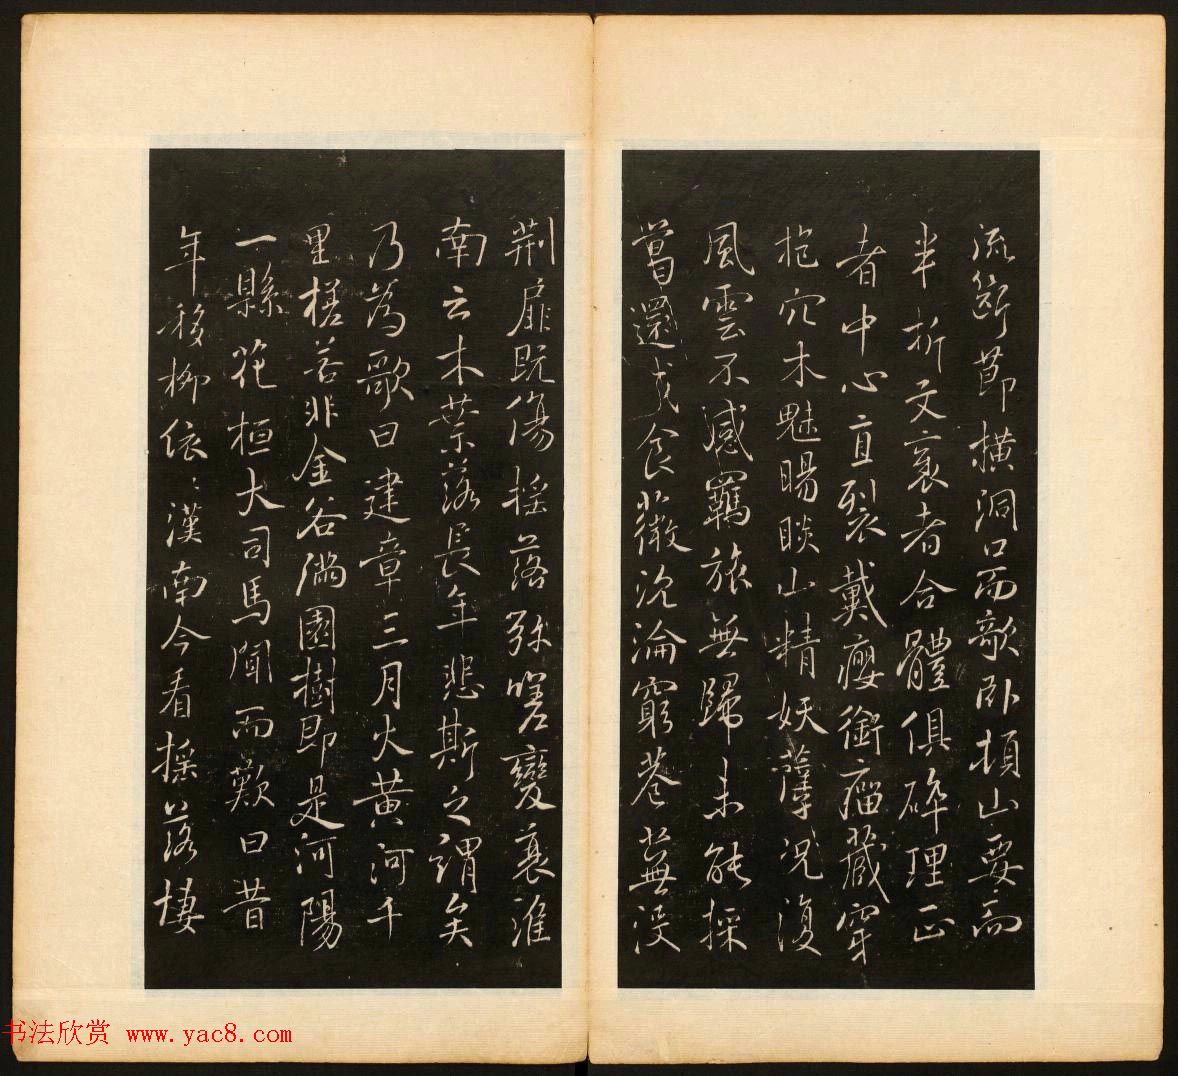 流斷節橫洞口而欹臥頓山要而
半折文衺者合體俱碎理正
者中心直裂戴癭銜瘤藏穿
抱穴木魅晹睒山精妖孽況復
風雲不感羈旅無歸未能採
葛還成食薇沉淪窮巷蕪沒
荊扉既傷搖落弥嗟變衰淮
南云木葉落長年悲斯之謂矣
乃為歌曰建章三月火黃河千
里槎若非金谷滿園樹即是河陽
一縣花桓大司馬聞而歎曰昔
年移柳依〻漢南今看搖落悽
书法欣赏 www.yac8.com